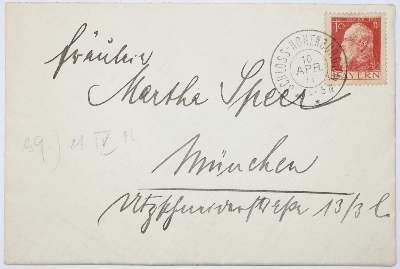 Fräulein
Martha Speer
München
Utzschneiderstraße 13/3 l.
SCHLOSS-HOHEN
APR
11
BAYERN
39.) 21 IV 11